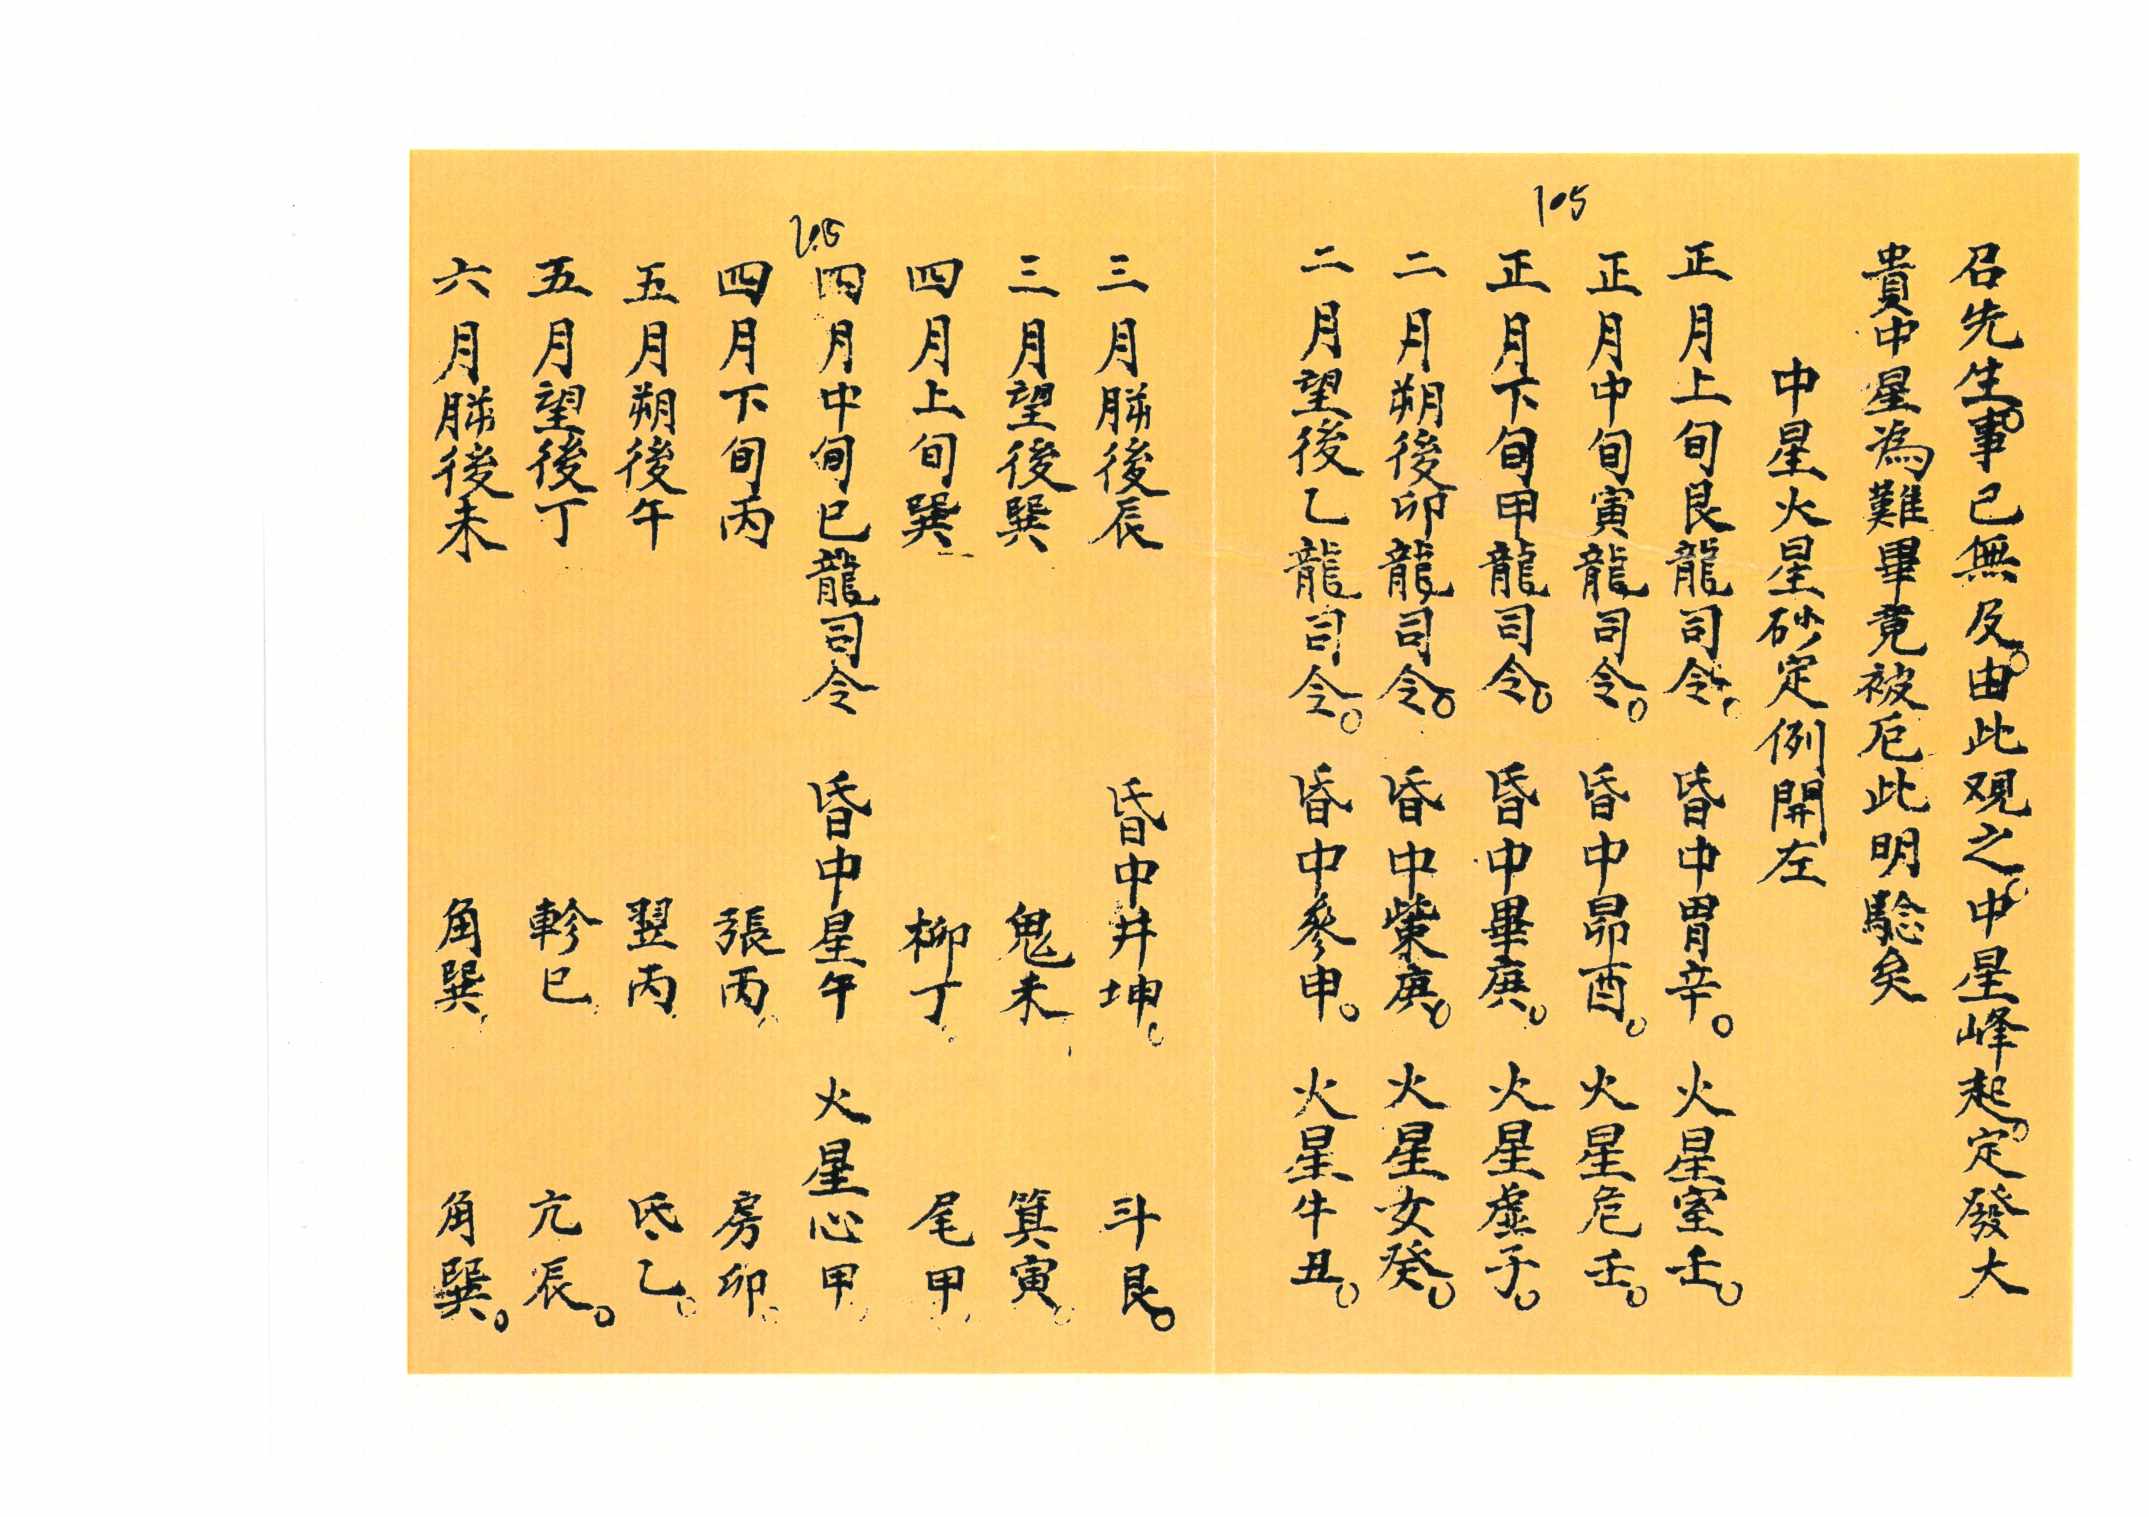 105
召先生。事已無及。由此观之。中星峰起。定發大
貴中星為難畢竟被厄此明驗矣
中星火星砂定例開左
正月上旬艮龍司令。 昏中胃辛。 火星室壬。
正月中旬寅龍司令。 昏中昴酉。 火星危壬。
正月下旬甲龍司令。 昏中畢庚。 火星虛子。
二月朔後卯龍司令。 昏中觜庚。 火星女癸。
二月望後乙龍司令。 昏中參申。 火星牛丑。
三月後辰 昏中井坤。 斗艮。
三月望後巽 鬼未 箕寅。
四月上旬巽 柳丁。 尾甲
四月中旬巳龍司令 昏中星午 火星心甲
四月下旬丙 張丙。 房卯。
五月朔後午 翌丙 氐乙。
五月望後丁 軫巳 亢辰。
六月後未 角巽 角巽。